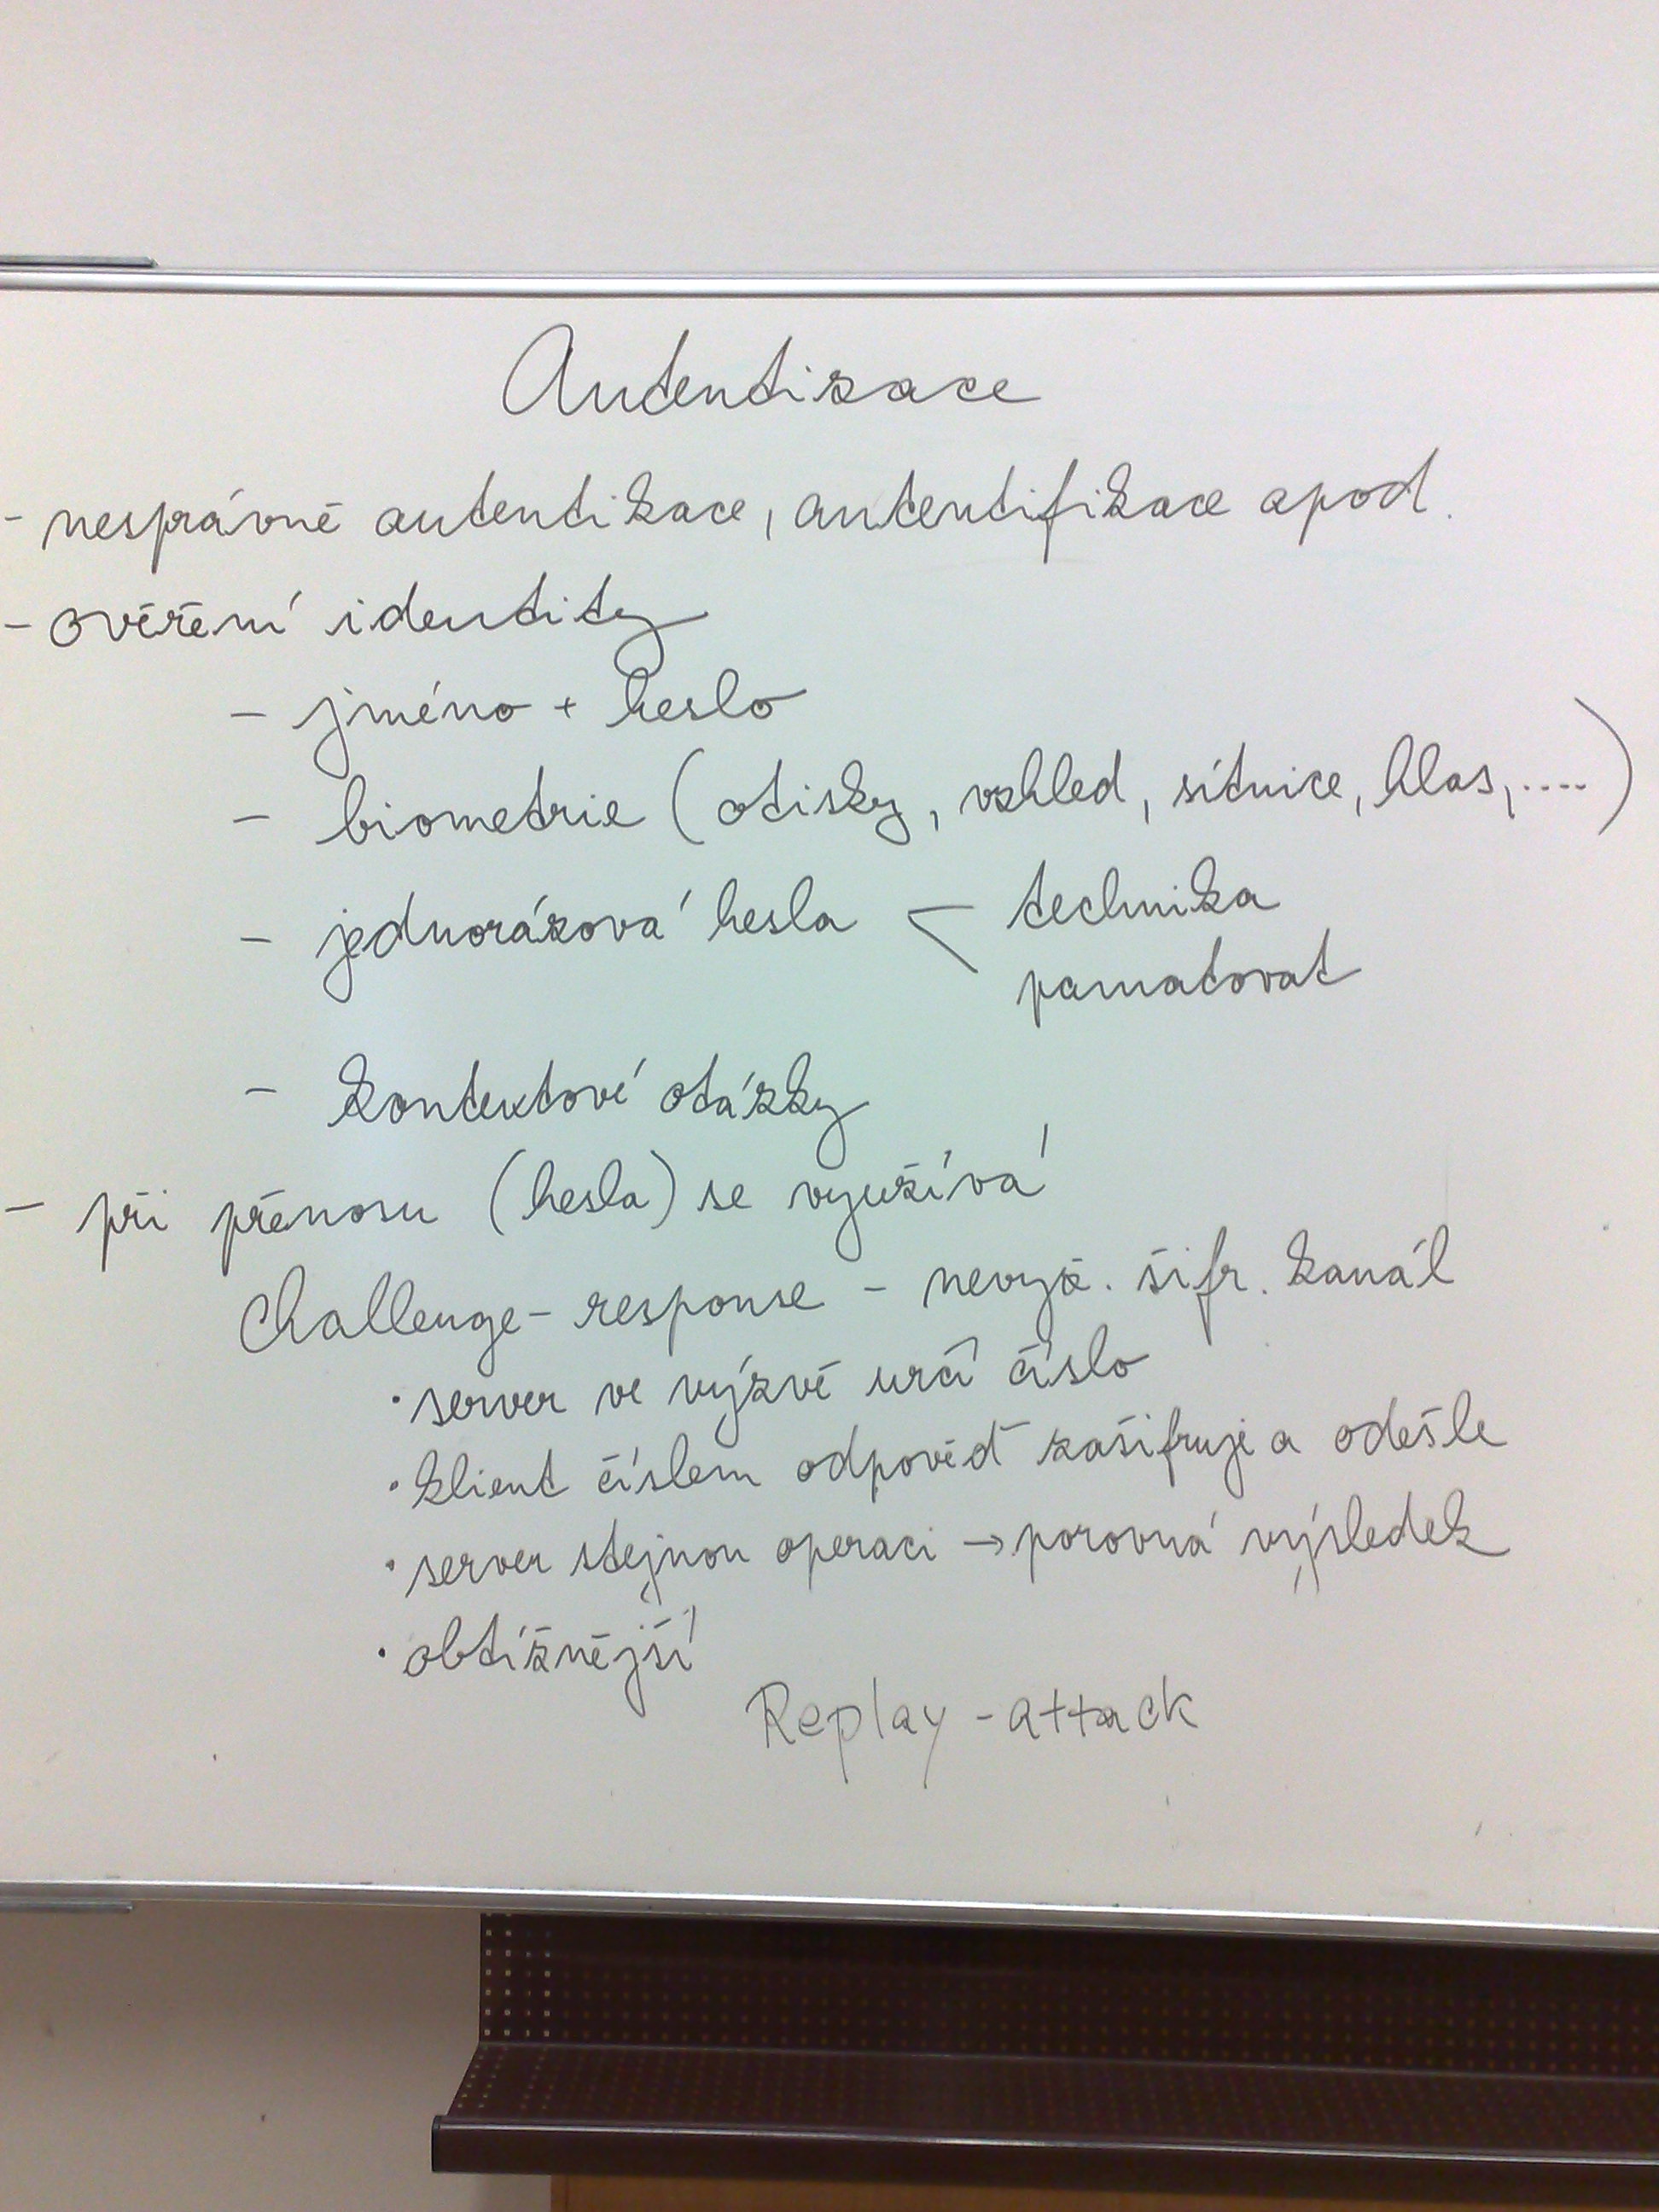 Autentizace
- nesprávně autentikace, autentifikace apod.
- ověření identity
- jméno + heslo
- biometrie (otisky, vzhled, sítnice, hlas, ....)
- jednorázová hesla < technika
pamatovat
- kontextové otázky
- při přenosu (hesla) se využívá
Challenge-response - nevyž. šifr. kanál
• server ve výzvě určí číslo
• klient číslem odpověď zašifruje a odešle
• server stejnou operaci → porovná výsledek
• obtížnější
Replay-attack